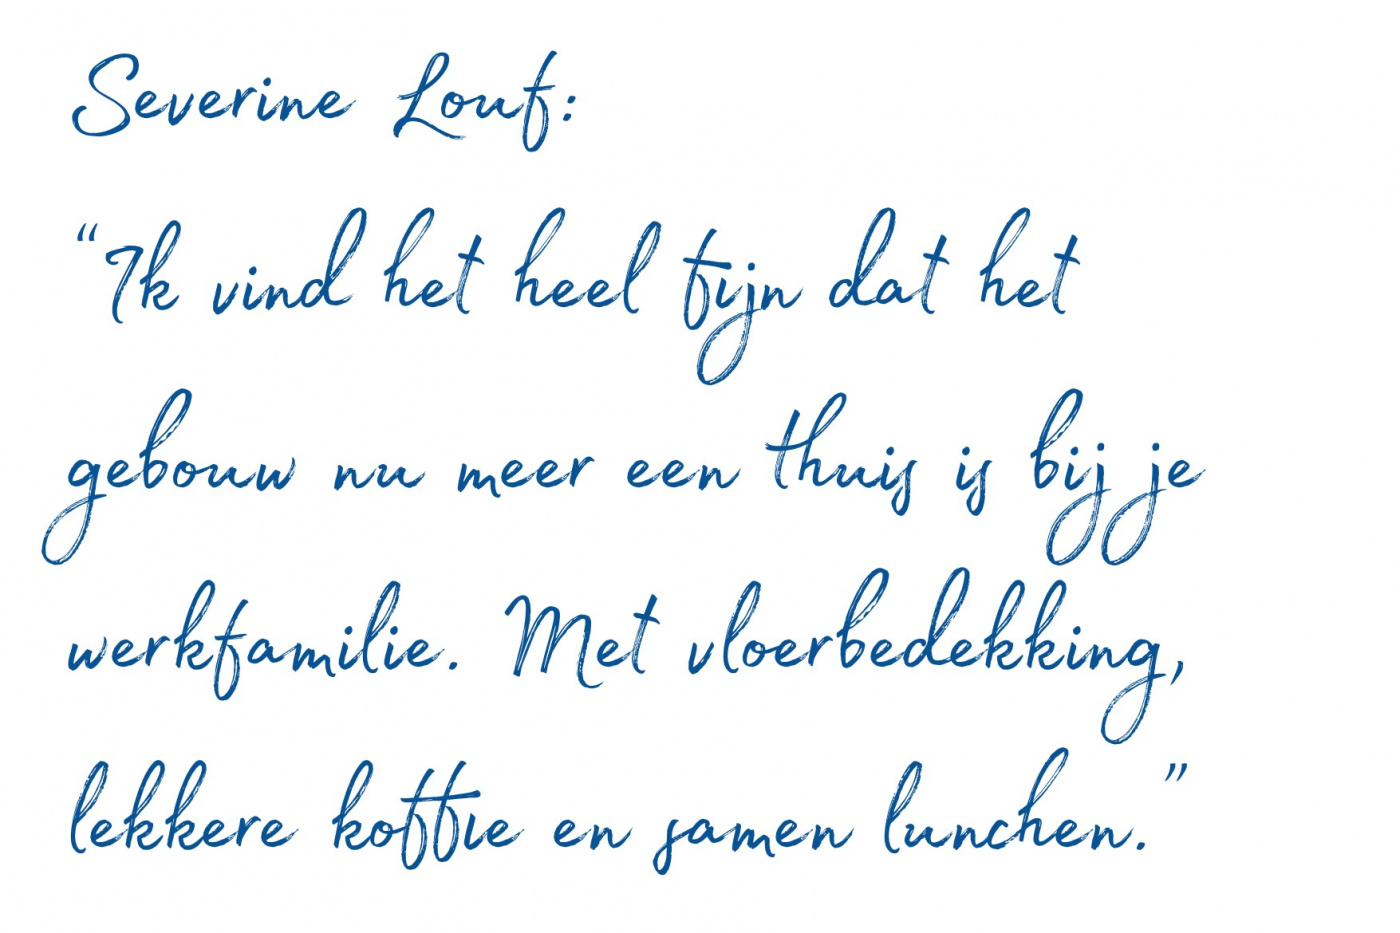 Severine Louf:
“Ik vind het heel fijn dat het
gebouw nu meer een thuis is bij je
werkfamilie. Met vloerbedekking,
lekkere koffie en samen lunchen.”